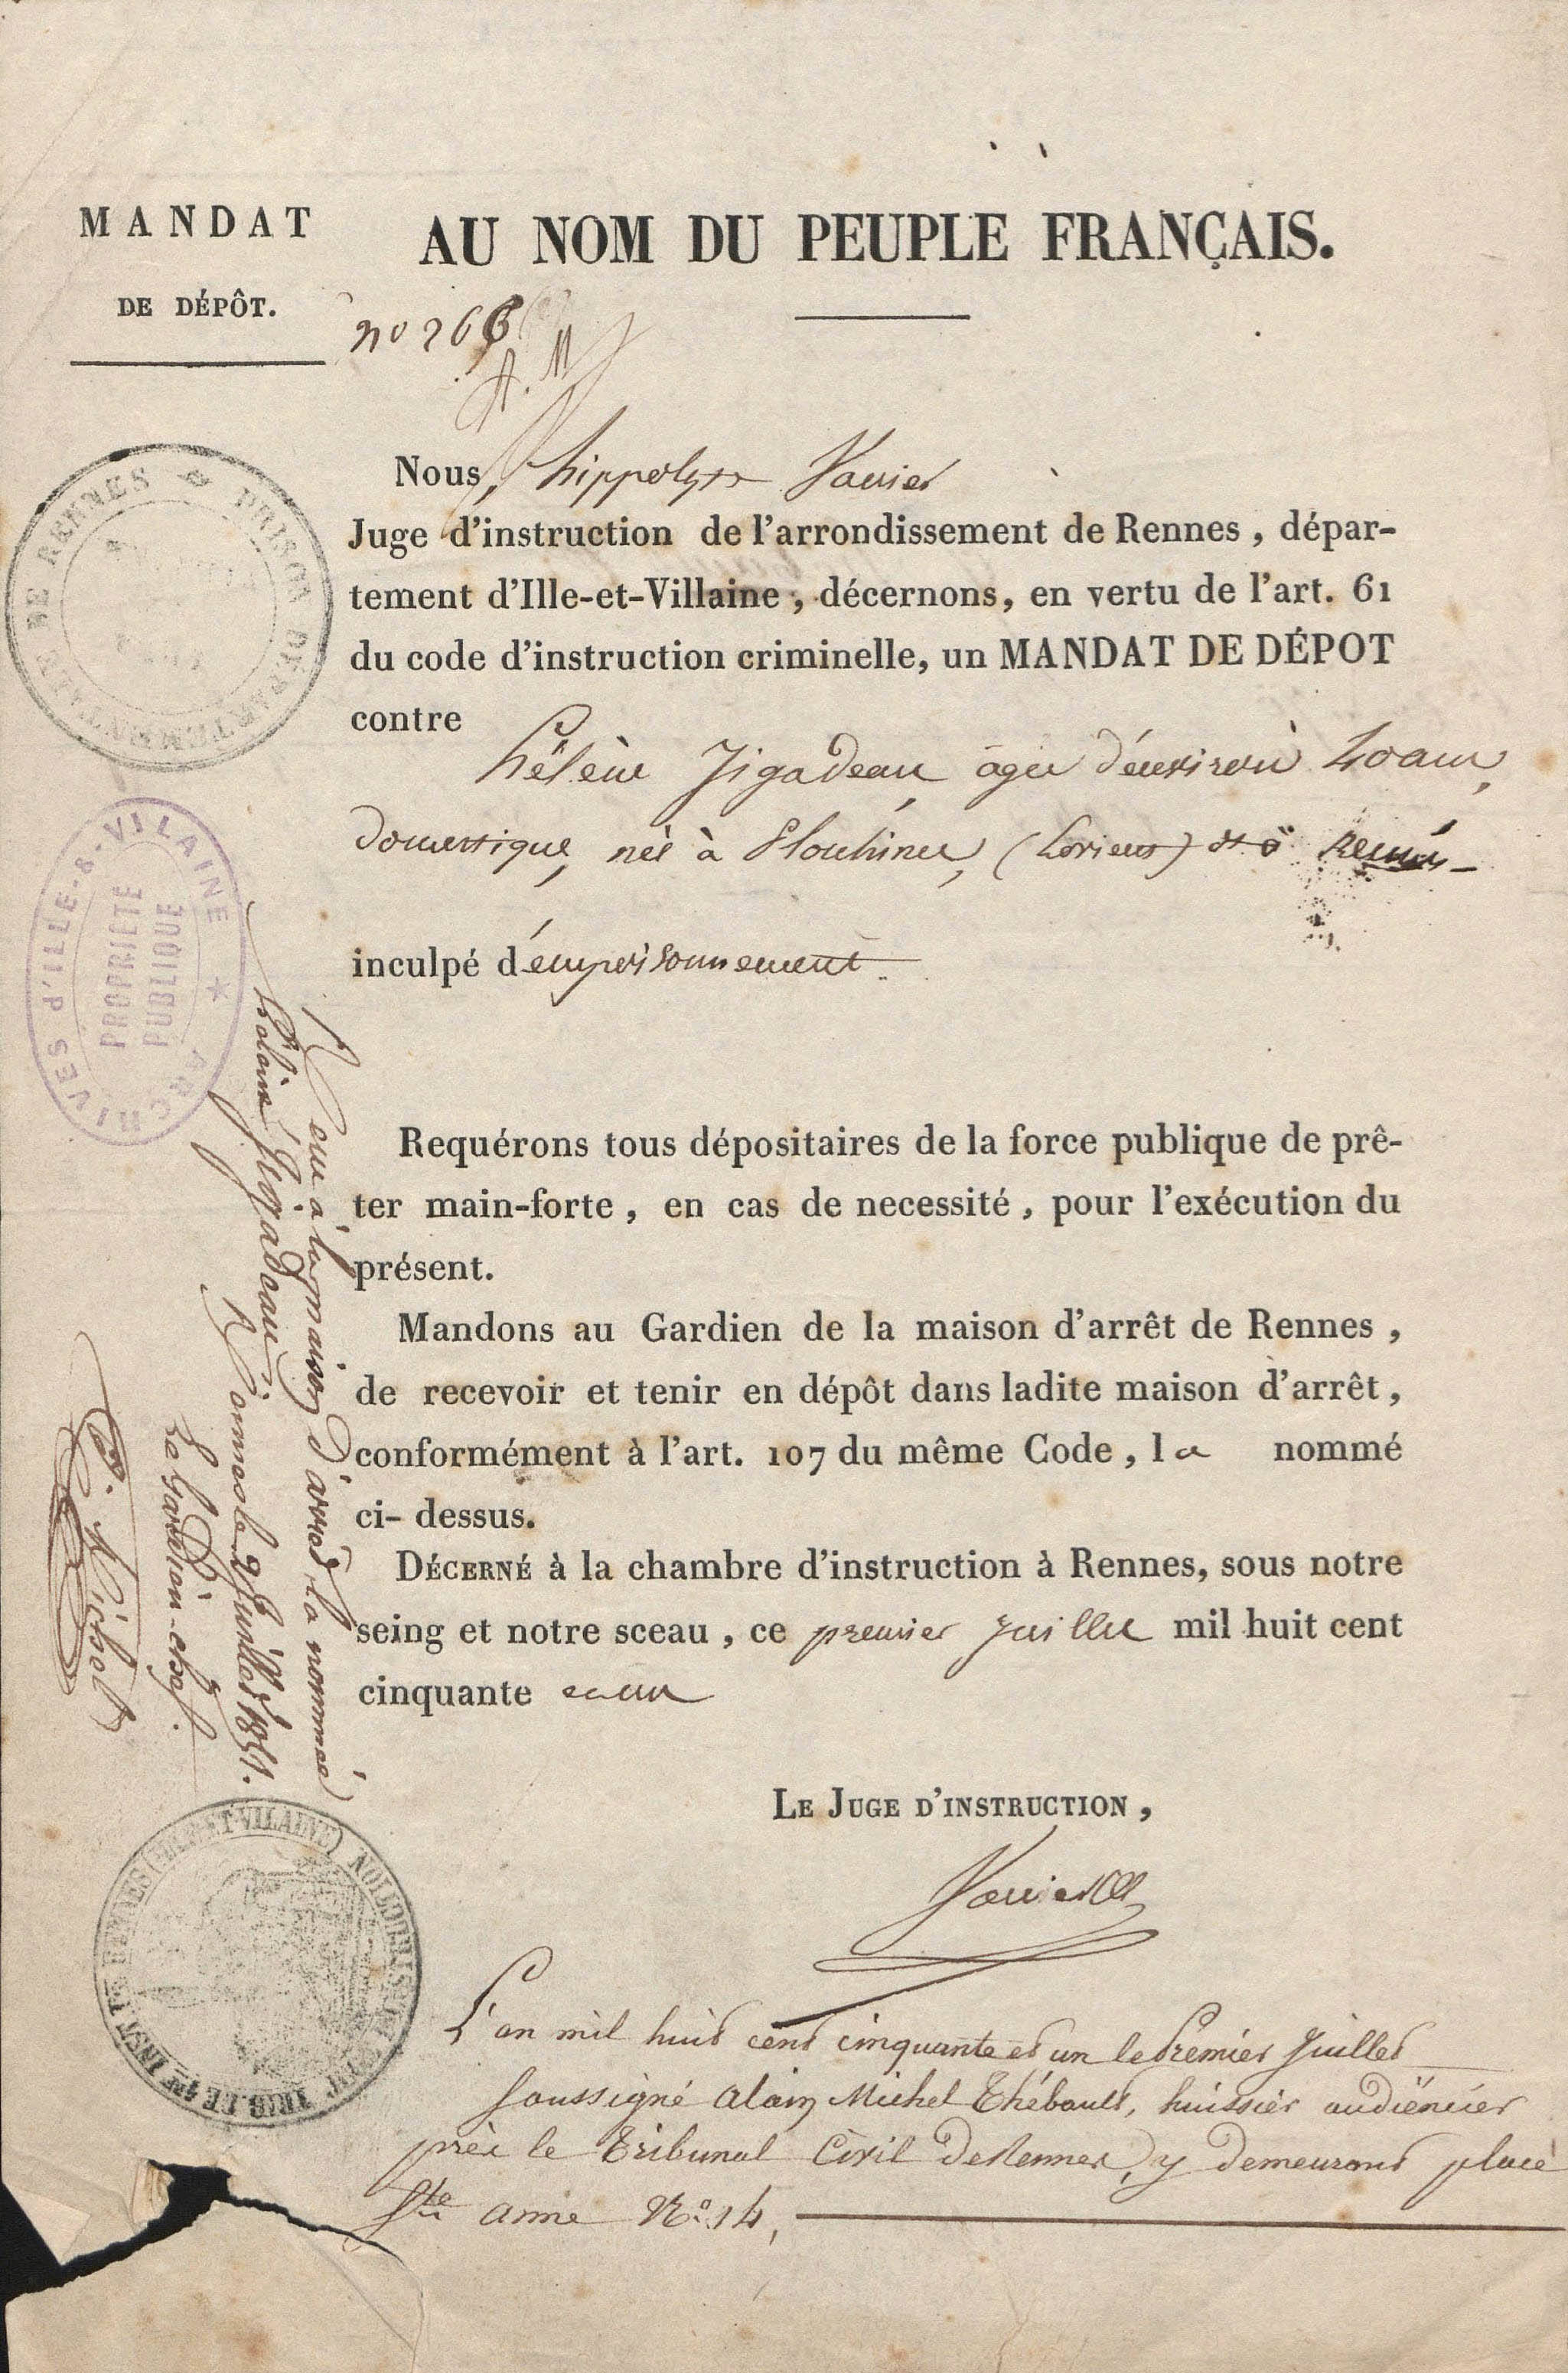 MANDAT
DE DÉPÔT.
AU NOM DU PEUPLE FRANÇAIS.
no 266
Nous, hippolyte Vannier
Juge d'instruction de l'arrondissement de Rennes, dépar-
tement d'Ille-et-Villaine, décernons, en vertu de l'art. 61
du code d'instruction criminelle, un MANDAT DE DÉPOT
contre
hélène Jégadeau, agée d'environ 40 ans,
domestique, née à Plouhinec, (Lorient) et à Rennes
inculpé d'empoisonnement.
Requérons tous dépositaires de la force publique de prê-
ter main-forte, en cas de necessité, pour l'exécution du
présent.
Mandons au Gardien de la maison d'arrêt de Rennes,
de recevoir et tenir en dépôt dans ladite maison d'arrêt,
conformément à l'art. 107 du même Code, la nommé
ci-dessus.
DÉCERNÉ à la chambre d'instruction à Rennes, sous notre
seing et notre sceau, ce premier juillet mil huit cent
cinquante et un
LE JUGE D'INSTRUCTION,
L'an mil huit cent cinquante et un le Premier Juillet
Soussigné Alain Michel Thébault, huissier audiencier
près le Tribunal Civil de Rennes, y demeurant place
Ste anne No. 14,
Recu à la maison d'arret la nommée
hélène Jégadeau
Rennes le 2 Juillet 1851.
Le Gardien-chef.
PRISON DÉPARTEMENTALE DE RENNES
ARCHIVES d'ILLE-&-VILAINE
PROPRIÉTÉ
PUBLIQUE
TRIB. DE 1ère INST. DE RENNES (ILLE-ET-VILAINE)